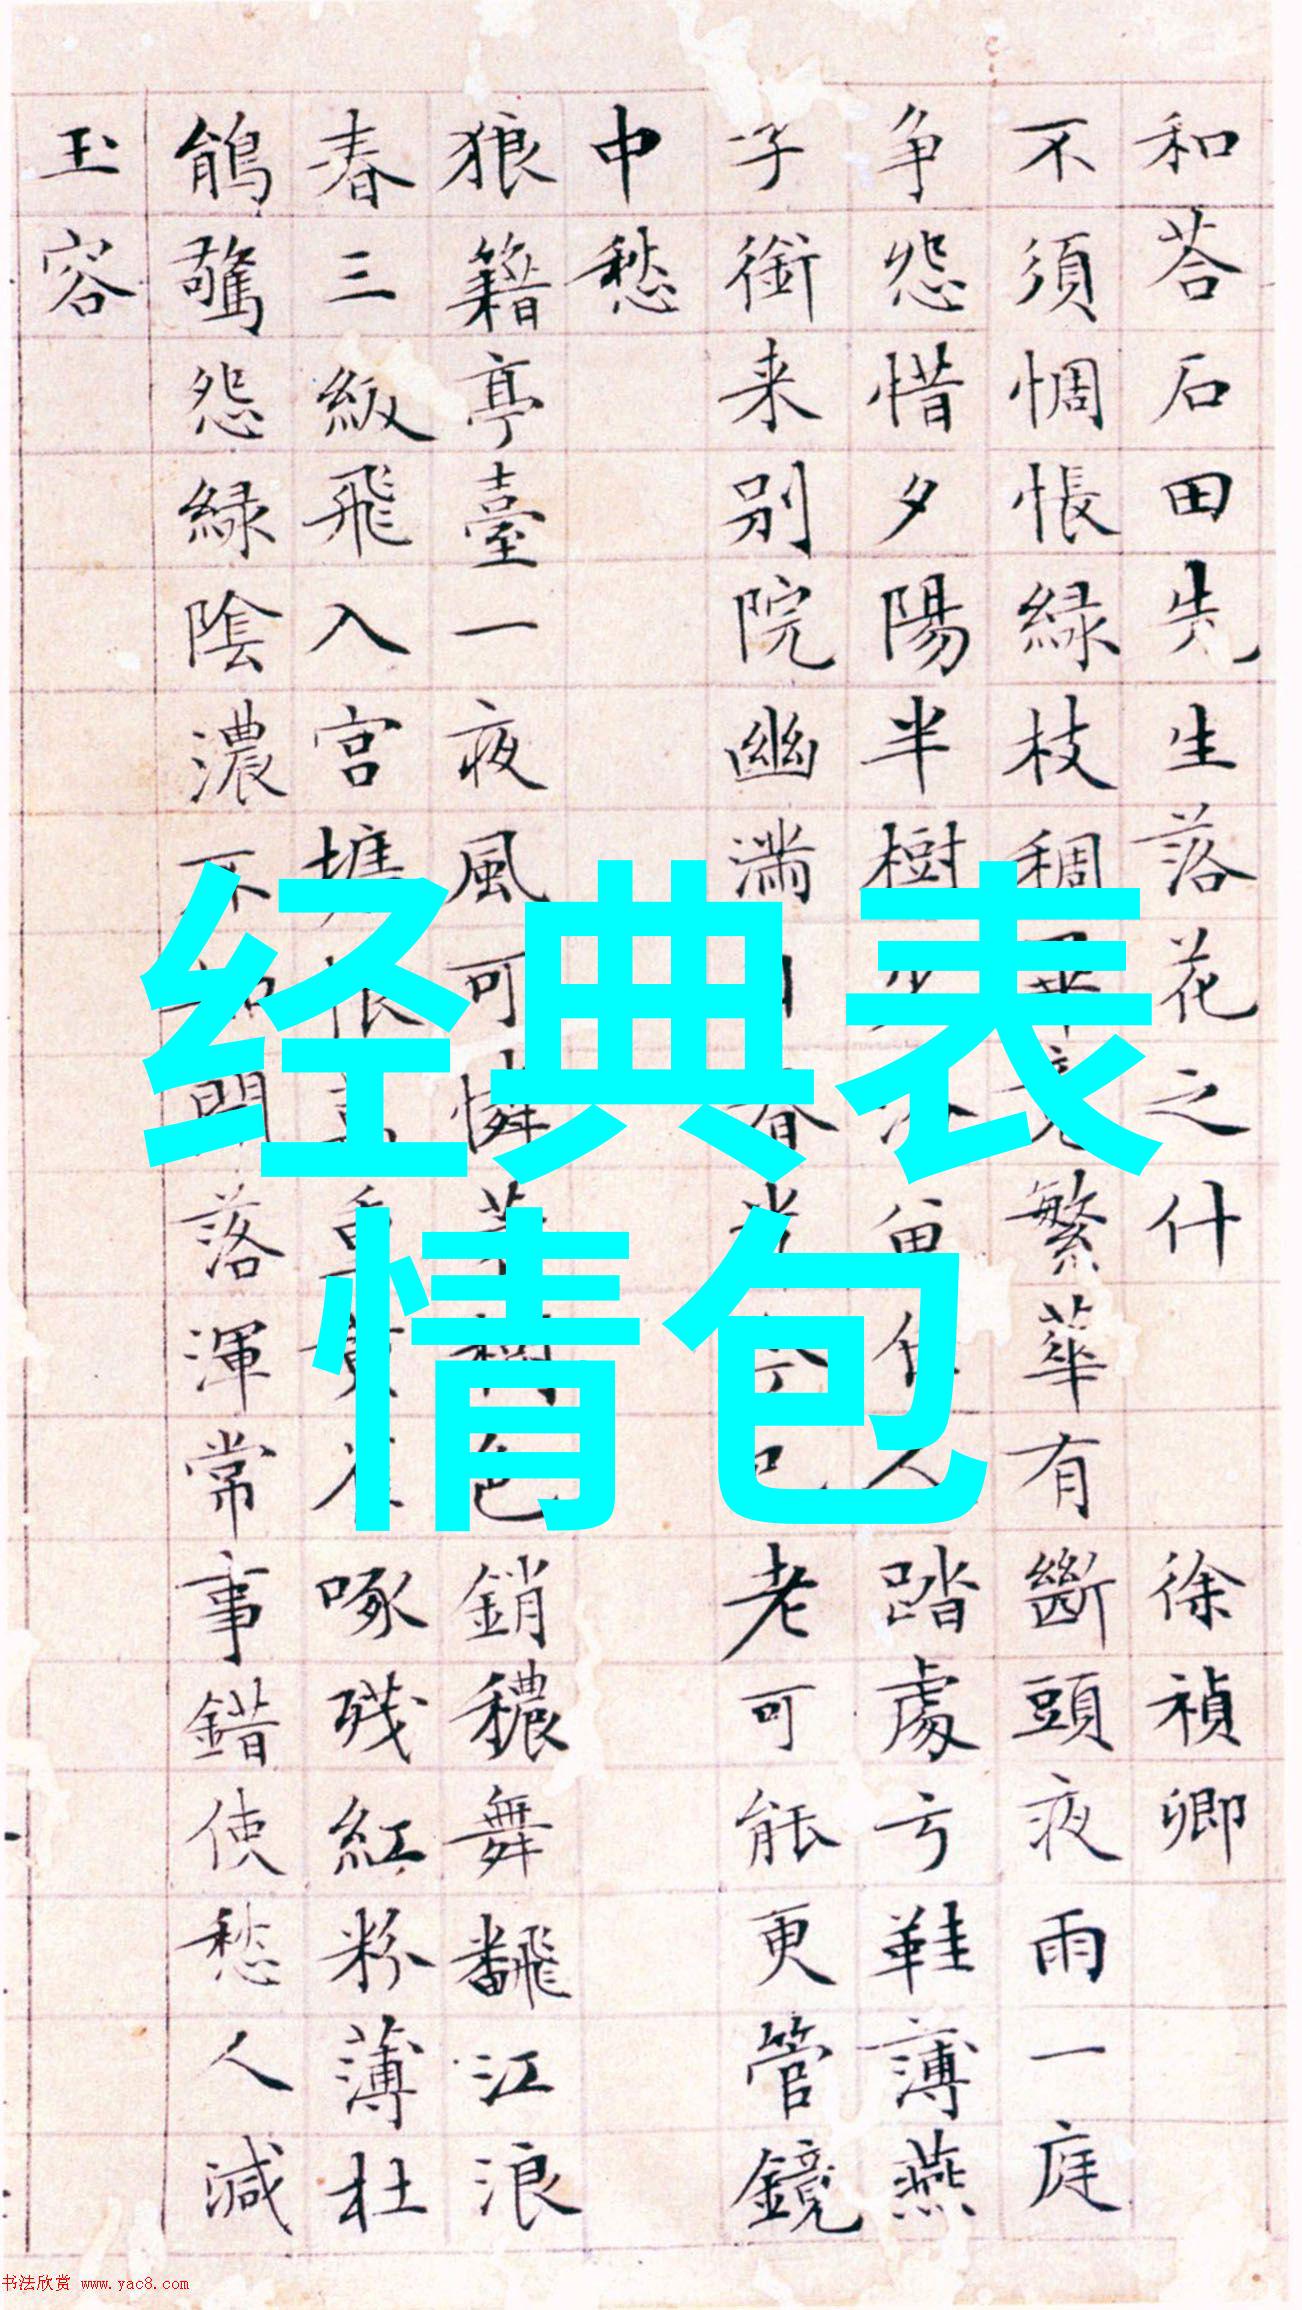 和荅石田先生落花之什 徐禎卿
不須惆悵綠枝稠 繁華有斷頭夜雨一庭
争怨惜夕陽半樹 踏處亏鞋薄燕
子銜来别院幽满 老可能更管鏡
中愁
狼籍亭臺一夜風可憐 色銷穠舞飜江浪
春三級飛入宮 啄残紅粉薄杜
鵑驚怨緑陰濃不知門 落渾常事錯使愁人減
玉容
经典表
情包
书法欣赏 www.yac8.com